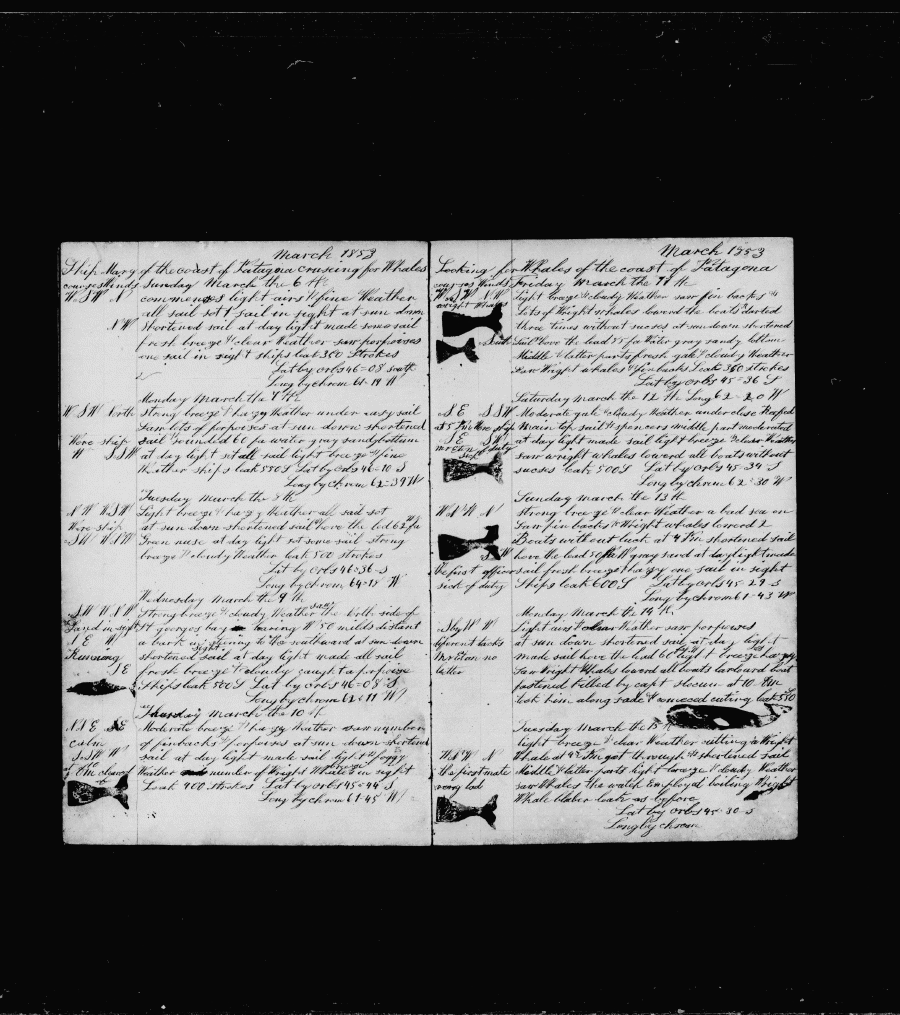 March 1853
Ship Mary of the coast of Patagona crusing for Whales
courses Winds Sunday March the 6 th
W.SW N commences light airs & fine Weather
all sail sett 1 sail in sight at sun down
NW shortened sail at day light made some sail
fresh breeze & clear Weather saw porpoises
one sail in sight ships leak 360 Strokes
Lat by orbs 46=08 South
Long by chrom 61-19 W
Monday March the 7 th
W SW North strong breeze & hazy Weather under easy sail
saw lots of porposes at sun down shortened
Wore ship sail sounded 60 fa water gray sandy bottom
W SSW at day light set all sail light breeze & fine
Weather ships leak 550 S Lat by orbs 46-10 S
Long by chrom 62-39 W
Tuesday march the 8 th
N W WSW Light breeze & hazy Weather all sail set
Wore ship at sun down shortened sail hove the led 62 fa
SW WNW Green at day light set some sail strong
breeze & cloudy Weather leak 500 strokes
Lat by orbs 46-36-S
Long by chrom 64-18 W
Wednesday march the 9 th
SW WNW Strong breeze & cloudy Weather saw the North side of
Land in sight St georges bay baring W 50 milds distant
S E W a bark in sight stering to the to the at sun down
Running shortened sail at day light made all sail
S E fresh breeze & cloudy caught a porpoise
Ships leak 500 S Lat by orbs 46-08 S
Long by chrom 62-11 W
Thursday march the 10 th
N S E SE Moderate breeze & hazy Weather saw number
calm of finbacks & porpoises at sun down shortened
S.SW W sail at day light made sail light & foggy
Weather number of Wright Whales in sight
Leak 400 strokes Lat by orbs 45-44 S
Long by chrom 61-45 W
March 1853
Looking for Whales of the coast of Patagona
courses Winds Friday march the 11 th
NW light breeze & cloudy Weather saw fin backs &
wright Whales Lots of Wright whales lowerd the boats darted
three times without sucses at sun down shortened
South sail hove the lead 55 fa Water gray sandy bottom
Middle & latter parts fresh gale & cloudy Weather
saw Wright whales & finbacks Leak 360 strokes
Lat by orbs 45-36 S
Saturday march the 12 th Long 62-20 W
S E SSW Moderate gale & cloudy Weather under close Reefed
Wore ship main top sail & spencers middle part moderated
S E SW at day light made sail light breeze & clear Weather
saw wright whales lowerd all boats without
sucses leak 500 S Lat by orbs 45-34 S
Long by chrom 62-30 W
Sunday march the 13 th
strong breeze & clear Weather a bad sea on
WNW N Saw fin backs & Wright whales lowerd 2
Boats without luck at 4 Pm shortened sail
SW hove the lead 50 fa W gray sand at daylight made
the first officer sail fresh breeze & hazzy one sail in sight
sick of duty Ships leak 600 S Lat by orbs 45-29 S
Long by chrom 61-43 W
Monday March the 14 th
S by W W Light airs & clear Weather saw porpuses
diferent tacks at sun down shortened sail at day light
no made sail hove the lead 60 light breeze hazy
better saw Wright Whales lowerd all boats larboard boat
fastened killed by capt slocum at 10 Am
took him along side & comenced cuting leak 550
Tuesday march the 15 th
light breeze & clear Weather cutting a Wright
WNW N Whale at 4 Pm got through & shortened sail
the first mate Middle & latter parts light breeze & cloudy Weather
verry bad saw Whales the watch employd boiling Wright
Whale bluber leak as before
Lat by orbs 45-30-S
Long by chrom